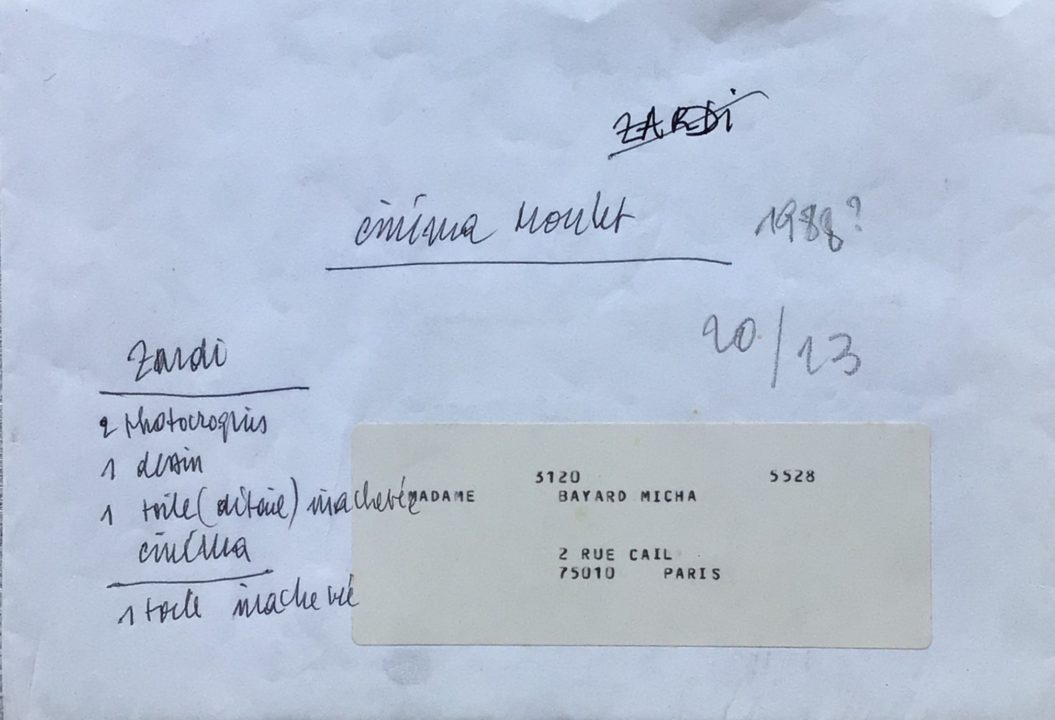 ZARDi
cinéma Moulet 1988?
20/23
Zardi
2 Photocroquis
1 dessin
1 toile (détail) inachevée
cinéma
1 toile inachevée
3120 5528
MADAME BAYARD MICHA
2 RUE CAIL
75010 PARIS